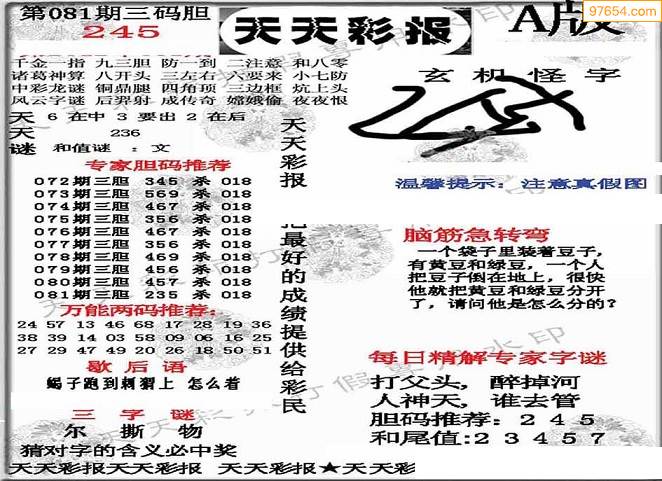 97654.com
第081期三码胆
245
天天彩报
A版
千金一指 九三胆 防一到 二注意 和八零
诸葛神算 八开头 三左右 六要来 小七防
中彩龙谜 铜鼎腿 四角顶 三边框 炕上头
风云字谜 后羿射 成传奇 嫦娥偷 夜夜恨
天天谜
6 在中 3 要出 2 在后
236
和值谜 : 文
专家胆码推荐
072期三胆 345 杀 018
073期三胆 569 杀 018
074期三胆 467 杀 018
075期三胆 356 杀 018
076期三胆 467 杀 018
077期三胆 356 杀 018
078期三胆 469 杀 018
079期三胆 456 杀 018
080期三胆 457 杀 018
081期三胆 235 杀 018
万能两码推荐:
24 57 13 46 68 17 28 19 36
38 39 14 03 58 09 06 16 25
27 29 47 49 20 26 18 50 51
歇后语
蝎子跑到刺猬上 怎么着
三字谜
尔 撕 物
猜对字的含义必中奖
天天彩报
把最好的成绩提供给彩民
玄机怪字
温馨提示: 注意真假图
脑筋急转弯
一个袋子里装着豆子,
有黄豆和绿豆, 一个人
把豆子倒在地上, 很快
他就把黄豆和绿豆分开
了, 请问他是怎么分的?
每日精解专家字谜
打父头, 醉掉河
人神天, 谁去管
胆码推荐: 2 4 5
和尾值:2 3 4 5 7
天天彩报天天彩报 天天彩报★天天彩